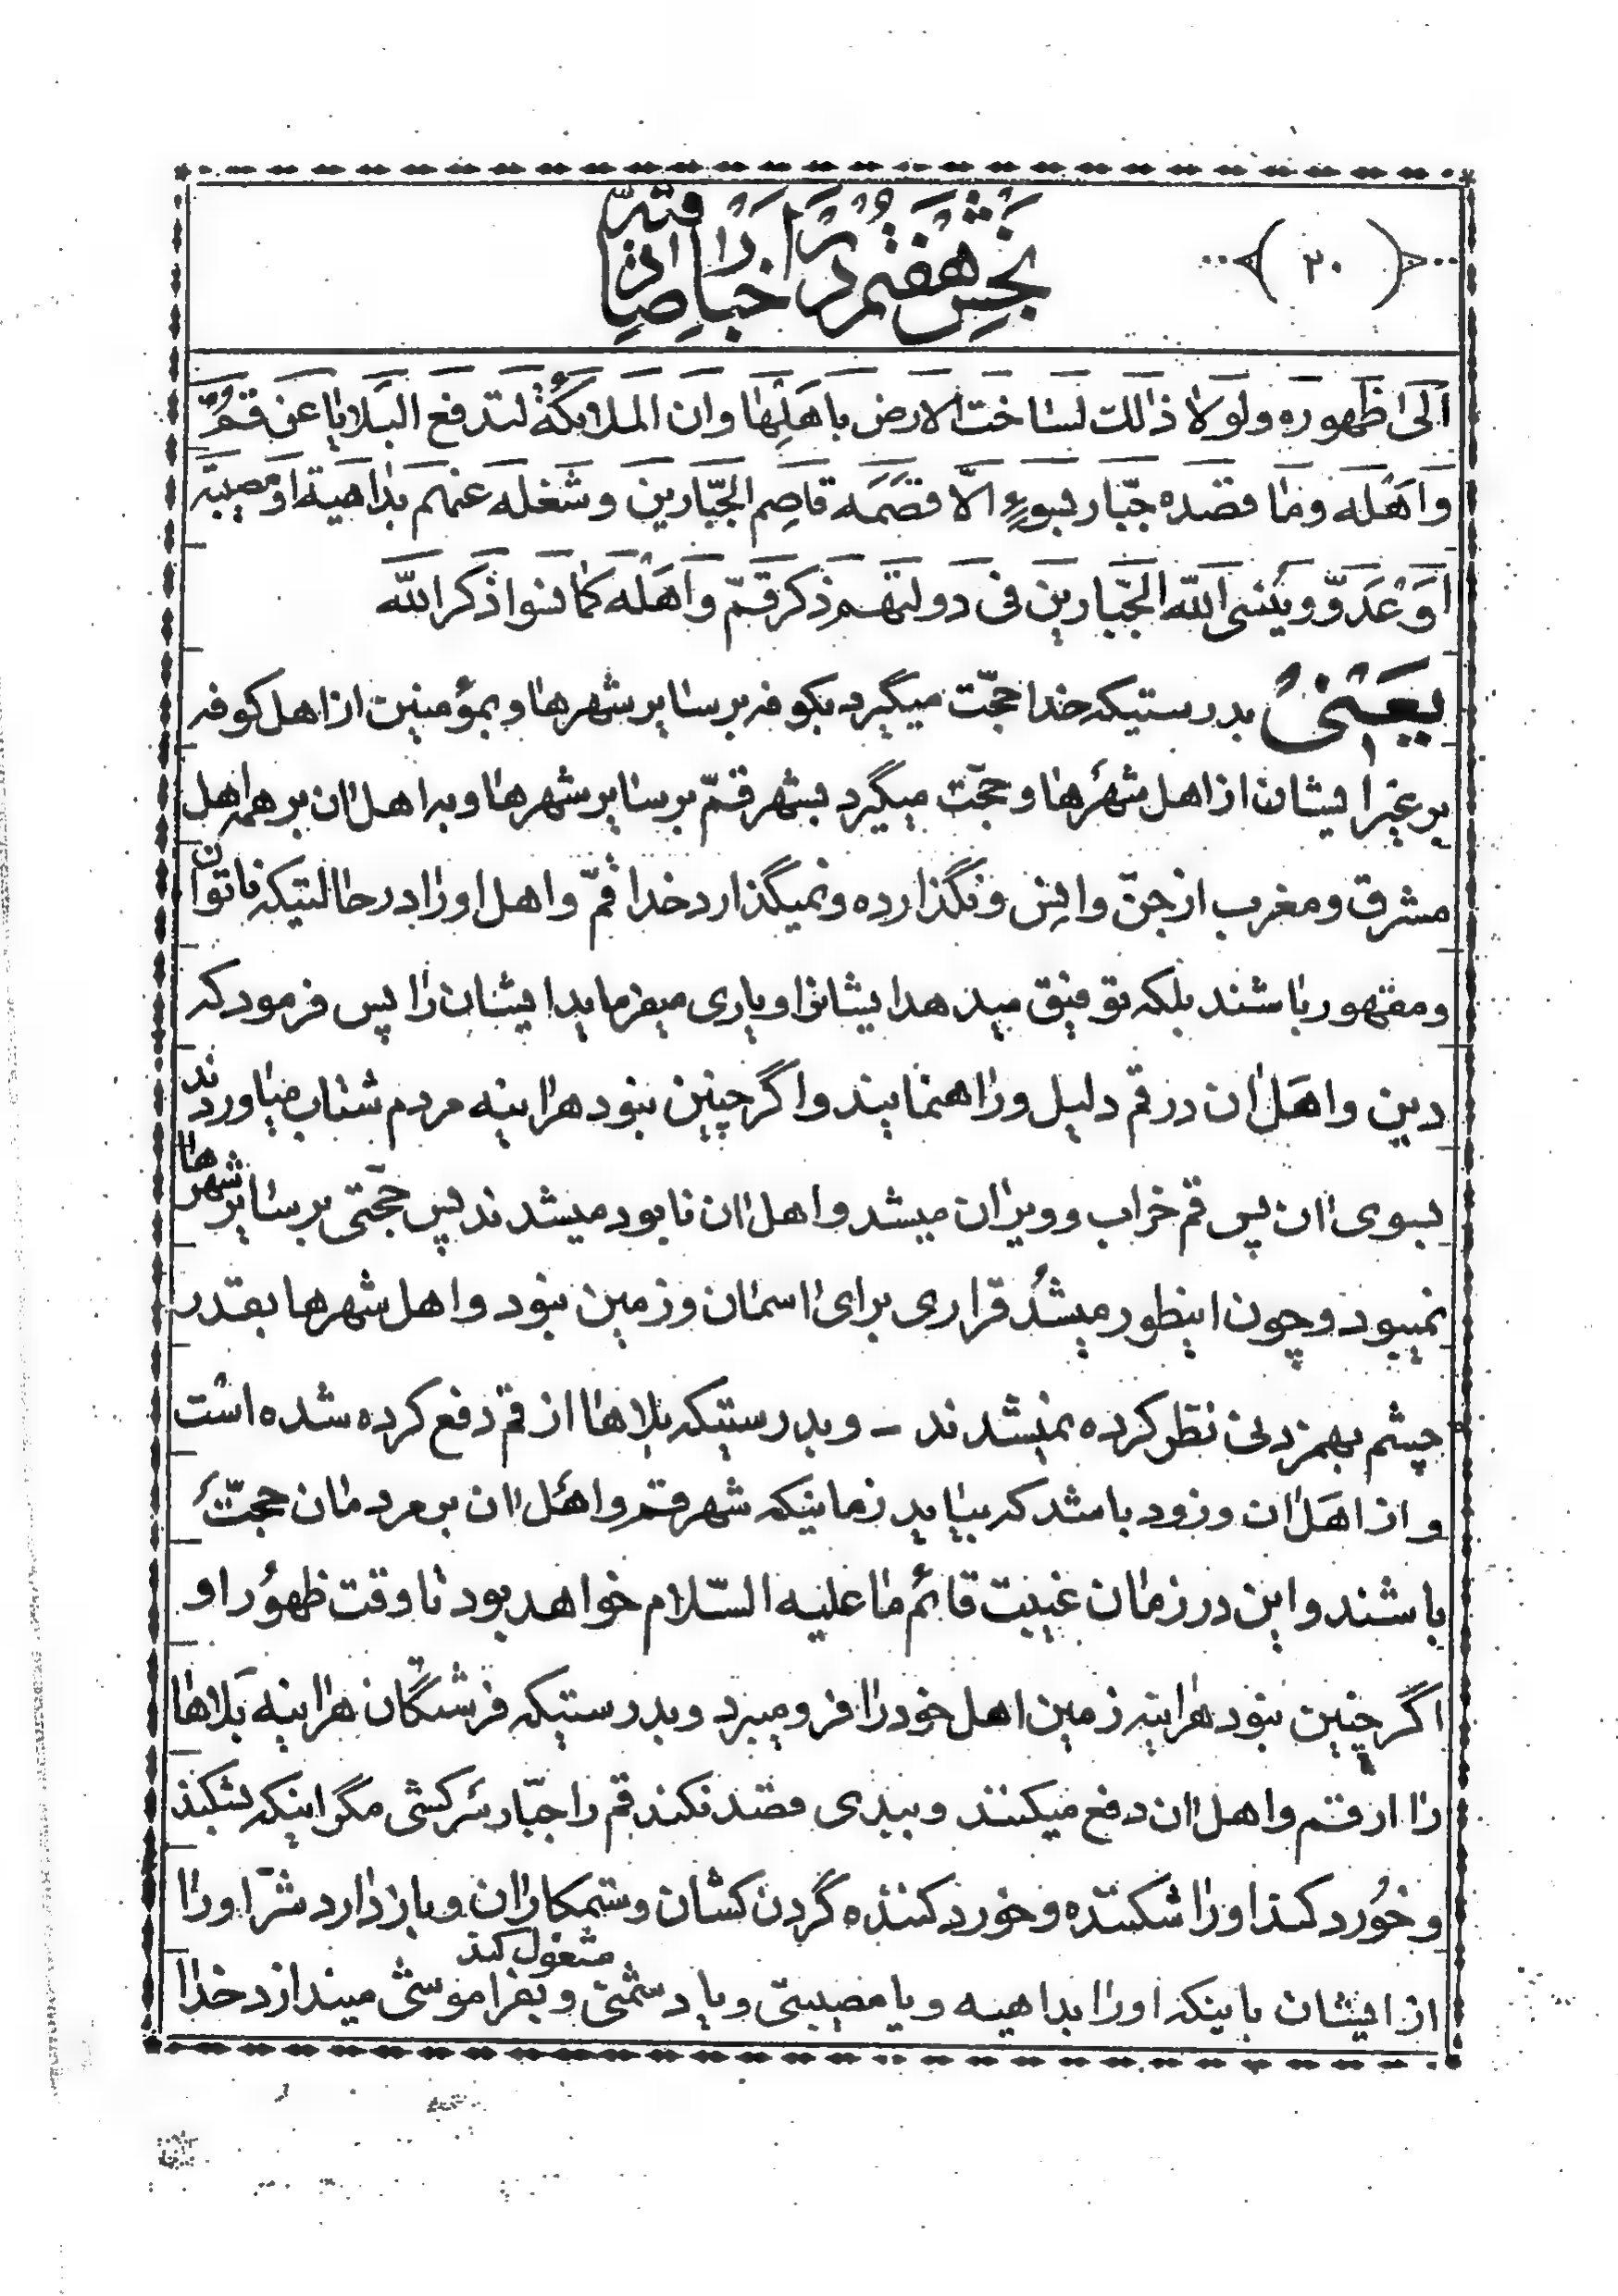 ﴿ ٣٠ ﴾
بخش هفتم در اخبار صادقیه
الی ظهوره ولولا ذالك لساخت الارض باهلها وان الملایكة لتدفع البلایا عن قم
واهله وما قصده جبّار بسوءٍ الّا قصمه قاصم الجبّارین وشغله عنهم بداهیة او مصیبة
او عدوّ وینسی الله الجبّارین فی دولتهم ذكر قمّ واهله كما نسوا ذكر الله
یعنی بدرستیكه خدا حجّت میگیرد بكوفه بر سایر شهرها وبمؤمنین از اهل كوفه
بر غیر ایشان از اهل شهرها و حجّت میگیرد بشهر قمّ بر سایر شهرها وبه اهل ان بر همه اهل
مشرق ومغرب از جن وانس و نگذارده ونمیگذارد خدا قمّ واهل او را در حالتیكه ناتوان
ومقهور باشند بلكه توفیق میدهد ایشانرا ویاری میفرماید ایشان را پس فرمود كه
دین واهل ان در قم دلیل و راهنمایند واگر چنین نبود هراینه مردم شتاب میاوردند
بسوی ان پس قم خراب وویران میشد واهل ان نابود میشدند پس حجّتی بر سایر شهرها
نمیبود وچون اینطور میشد قراری برای اسمان وزمین نبود واهل شهرها بقدر
چشم بهمزدنی نظر كرده نمیشدند – وبدرستیكه بلاها از قم دفع كرده شده است
و از اهل ان وزود باشد كه بیاید زمانیكه شهر قم واهل ان بر مردمان حجّت
باشند واین در زمان غیبت قائم ما علیه السّلام خواهد بود تا وقت ظهور او
اگر چنین نبود هراینه زمین اهل خود را فرومیبرد وبدرستیكه فرشتگان هراینه بلاها
را از قم واهل ان دفع میكنند وببدی قصد نكند قم را جبّار سركشی مگر اینكه بشكند
وخورد كند او را شكننده وخورد كننده گردن كشان وستمكاران وباز دارد شرّ او را
از ایشان باینكه او را بداهیه ویا مصیبتی ویا دشمنی مشغول كند وبفراموشی میندازد خدا